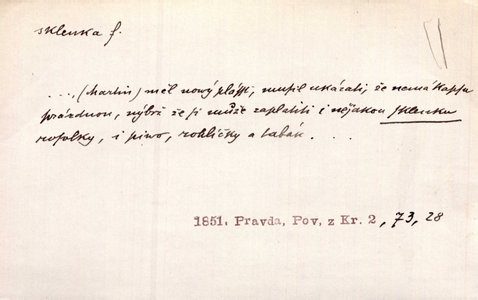 sklenka f.
..., (Martin) měl nový plášť, musil ukázati, že nemá kapsu
prázdnou, nýbrž že si může zaplatiti i nějakou sklenku
rosolky, i pivo, rohlíčky a tabák. . . .
1851. Pravda, Pov. z Kr. 2, 73, 28